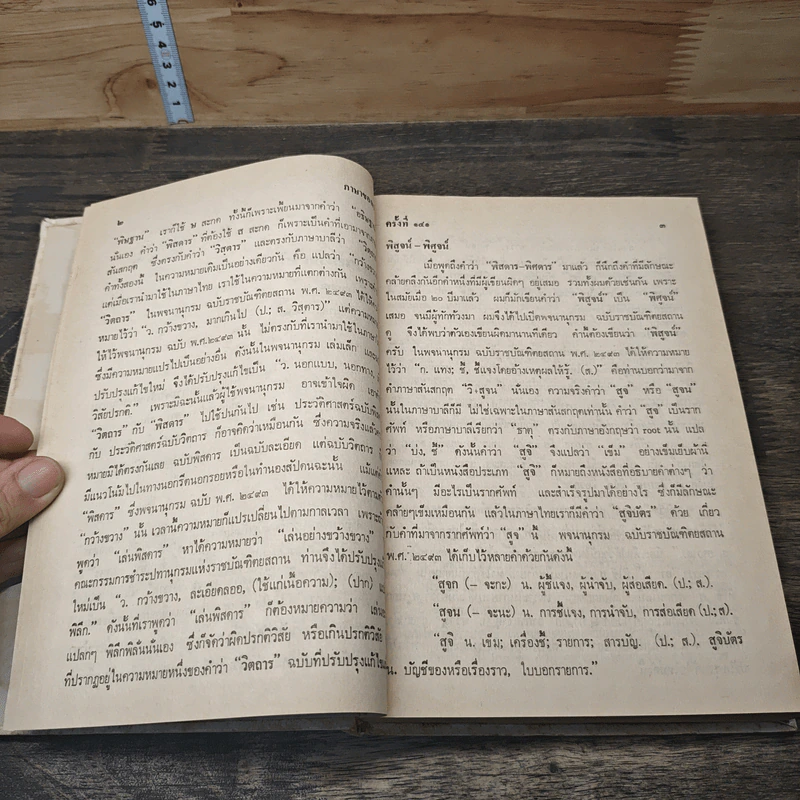 ๒
ภาษาของ
"พิษฐาน" เราก็ใช้ ษ สะกด ทั้งนี้ก็เพราะเพี้ยนมาจากคำว่า
นั่นเอง คำว่า "พิสดาร" ที่ต้องใช้ ส สะกด ก็เพราะเป็นคำที่เอามาจาก
สันสกฤต ซึ่งตรงกับคำว่า "วิสฺตาร" และตรงกับภาษาบาลีว่า
คำทั้งสองนี้ ในความหมายเดิมเป็นอย่างเดียวกัน คือ แปลว่า "กว้างขวาง"
แต่เมื่อเรานำมาใช้ในภาษาไทย เราใช้ในความหมายที่แตกต่างกัน เพราะ
"วิตถาร" ในพจนานุกรม ฉบับราชบัณฑิตยสถาน พ.ศ. ๒๔๙๓ ได้ให้
หมายไว้ว่า "ว. กว้างขวาง, มากเกินไป (ป.; ส. วิสฺตาร)" แต่ความ
ให้ไว้พจนานุกรม ฉบับ พ.ศ.๒๔๙๓ นั้น ไม่ตรงกับที่เรานำมาใช้ในภาษา
ซึ่งมีความหมายแปรไปเป็นอย่างอื่น ดังนั้นในพจนานุกรม เล่มเล็ก และ
ปรับปรุงแก้ไขใหม่ จึงได้ปรับปรุงแก้ไขเป็น "ว. นอกแบบ, นอกทาง,
วิสัยปรกติ." เพราะมิฉะนั้นแล้วผู้ใช้พจนานุกรม อาจเข้าใจผิด
"วิตถาร" กับ "พิสดาร" ไปใช้ปนกันไป เช่น ประวัติศาสตร์ฉบับพิสดาร
กับ ประวัติศาสตร์ฉบับวิตถาร ก็อาจคิดว่าเหมือนกัน ซึ่งความจริงแล้ว
หมายมิได้ตรงกันเลย ฉบับพิสดาร เป็นฉบับละเอียด แต่ฉบับวิตถาร
มีแนวโน้มไปในทางนอกรีตนอกรอยหรือในทำนองสัปดนฉะนั้น แม้แต่
"พิสดาร" ซึ่งพจนานุกรม ฉบับ พ.ศ. ๒๔๙๓ ได้ให้ความหมายไว้ตาม
"กว้างขวาง" นั้น เวลานี้ความหมายก็แปรเปลี่ยนไปตามกาลเวลา เพราะ
พูดว่า "เล่นพิสดาร" หาได้ความหมายว่า "เล่นอย่างขว้างขวาง"
คณะกรรมการชำระปทานุกรมแห่งราชบัณฑิตยสถาน ท่านจึงได้ปรับปรุง
ใหม่เป็น "ว. กว้างขวาง, ละเอียดลออ, (ใช้แก่เนื้อความ); (ปาก)
พิลึก." ดังนั้นที่เราพูดว่า "เล่นพิสดาร" ก็ต้องหมายความว่า
แปลกๆ พิลึกพิลั่นนั่นเอง ซึ่งก็จัดว่าผิดปรกติวิสัย หรือเกินปรกติวิสัย
ที่ปรากฏอยู่ในความหมายหนึ่งของคำว่า "วิตถาร" ฉบับที่ปรับปรุงแก้ไข
ครั้งที่ ๑๔๑ ๓
พิสูจน์ – พิศูจน์
เมื่อพูดถึงคำว่า "พิสดาร-พิศดาร" มาแล้ว ก็นึกถึงคำที่มีลักษณะ
คล้ายกลึงกันอีกคำหนึ่งที่มีผู้เขียนผิดๆ อยู่เสมอ รวมทั้งผมด้วยเช่นกัน เพราะ
ในสมัยเมื่อ ๒๐ ปีมาแล้ว ผมก็มักเขียนคำว่า "พิสูจน์" เป็น "พิศูจน์"
เสมอ จนมีผู้ทักท้วงมา ผมจึงได้ไปเปิดพจนานุกรม ฉบับราชบัณฑิตยสถาน
ดู จึงได้พบว่าตัวเองเขียนผิดมานานทีเดียว คำนี้ต้องเขียนว่า "พิสูจน์"
ครับ ในพจนานุกรม ฉบับราชบัณฑิตยสถาน พ.ศ. ๒๔๙๓ ได้ให้ความหมาย
ไว้ว่า "ก. แทง; ชี้, ชี้แจงโดยอ้างเหตุผลให้รู้. (ส.)" คือท่านบอกว่ามาจาก
คำภาษาสันสกฤต "วิ+สูจน" นั่นเอง ความจริงคำว่า "สูจ" หรือ "สูจน"
นั้นในภาษาบาลีก็มี ไม่ใช่เฉพาะในภาษาสันสกฤตเท่านั้น คำว่า "สูจ" เป็นราก
ศัพท์ หรือภาษาบาลีเรียกว่า "ธาตุ" ตรงกับภาษาอังกฤษว่า root นั้น แปล
ว่า "บ่ง, ชี้" ดังนั้นคำว่า "สูจิ" จึงแปลว่า "เข็ม" อย่างเข็มเย็บผ้านี่
แหละ ถ้าเป็นหนังสือประเภท "สูจิ" ก็หมายถึงหนังสือที่อธิบายคำต่างๆ ว่า
คำนั้นๆ มีอะไรเป็นรากศัพท์ และสำเร็จรูปมาได้อย่างไร ซึ่งก็มีลักษณะ
คล้ายๆเข็มเหมือนกัน แล้วในภาษาไทยเราก็มีคำว่า "สูจิบัตร" ด้วย เกี่ยว
กับคำที่มาจากรากศัพท์ว่า "สูจ" นี้ พจนานุกรม ฉบับราชบัณฑิตยสถาน
พ.ศ. ๒๔๙๓ ได้เก็บไว้หลายคำด้วยกันดังนี้
"สูจก (– จะกะ) น. ผู้ชี้แจง, ผู้นำจับ, ผู้ส่อเสียด. (ป.; ส.).
"สูจน (– จะนะ) น. การชี้แจง, การนำจับ, การส่อเสียด (ป.;ส.).
"สูจิ น. เข็ม; เครื่องชี้; รายการ; สารบัญ. (ป.; ส.). สูจิบัตร
น. บัญชีของหรือเรื่องราว, ใบบอกรายการ."
5 4 3 2 1